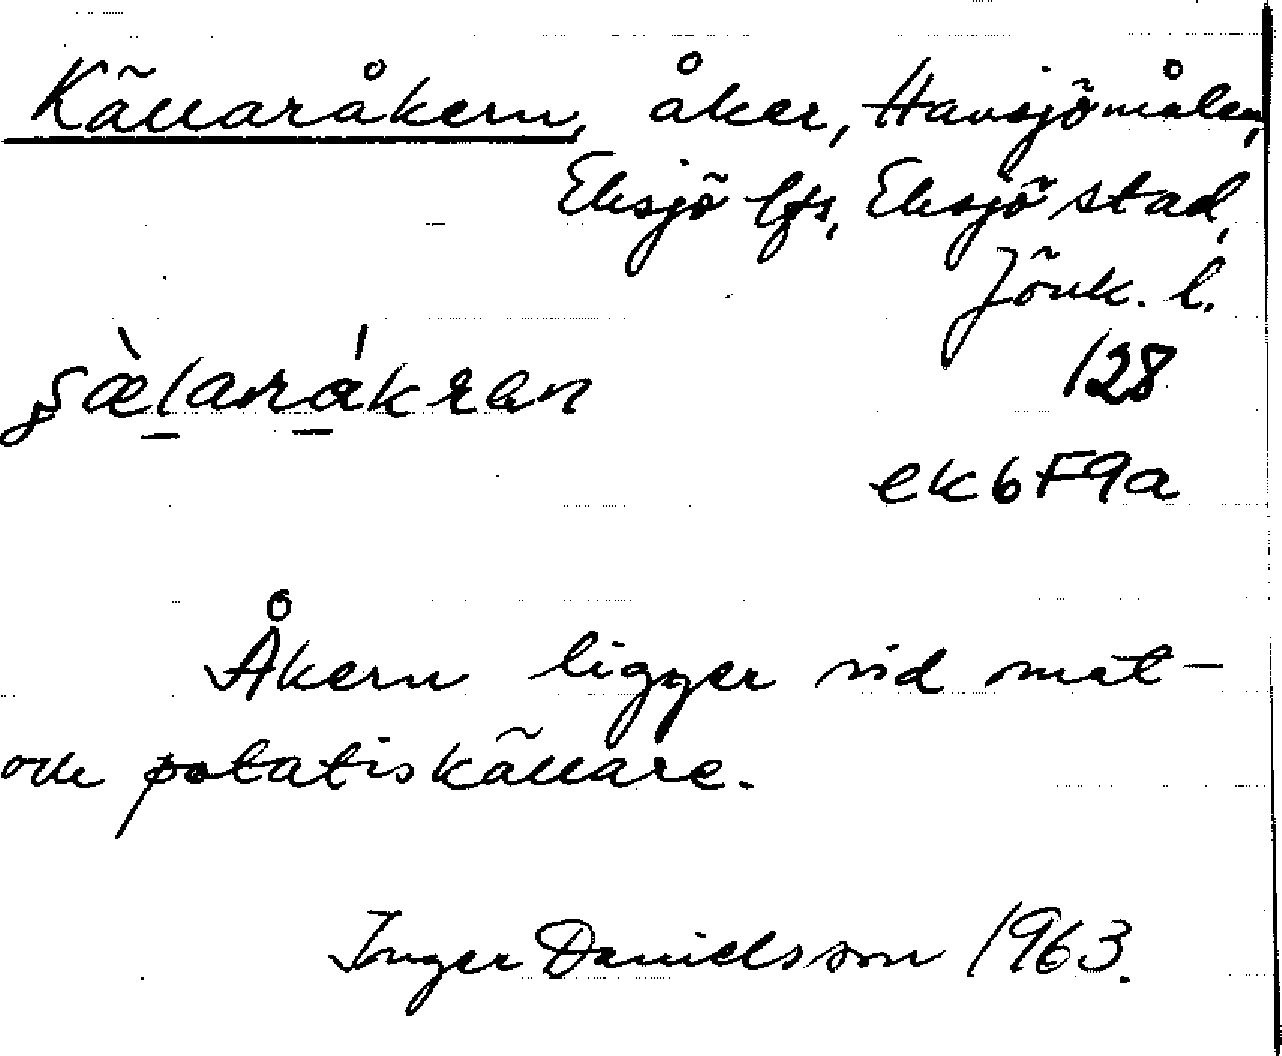 Källaråkern, åker, Havsjömålen,
Eksjö lfs, Eksjö stad,
Jönk. l.
128
ek6F9a
Åkern ligger vid mat-
och potatiskällare.
Inger Danielsson 1963.